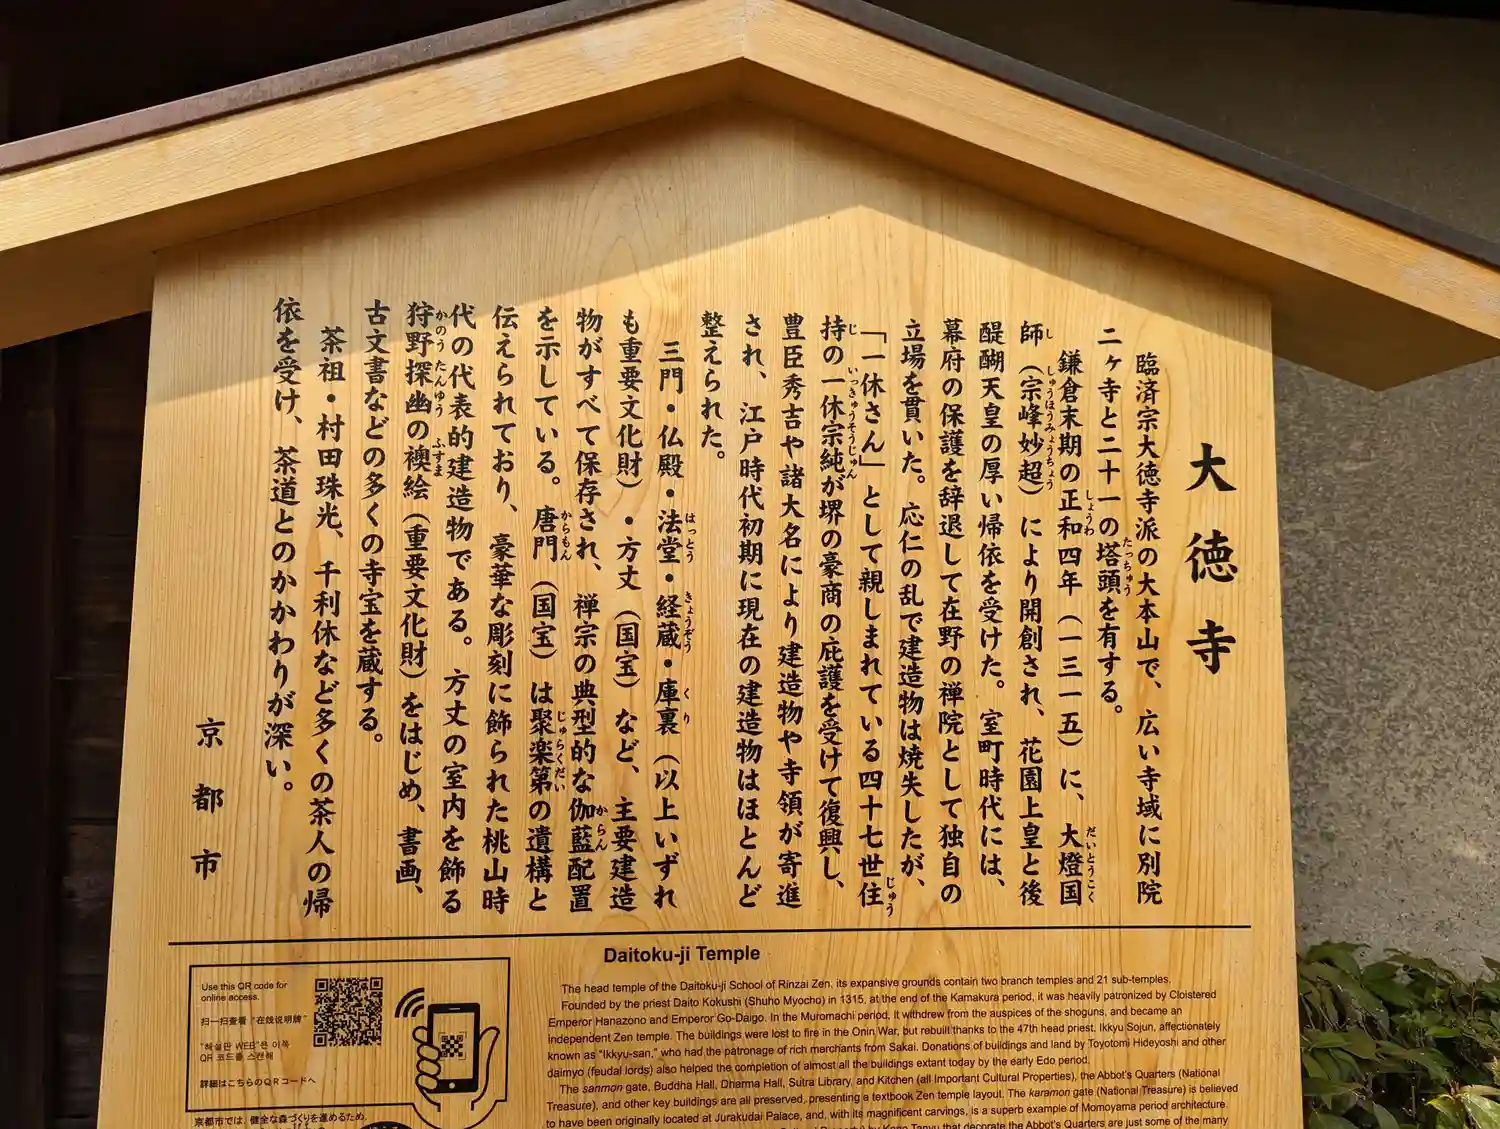 大徳寺
臨済宗大徳寺派の大本山で、広い寺域に別院
二ヶ寺と二十一の塔頭を有する。
鎌倉末期の正和四年（一三一五）に、大燈国
師（宗峰妙超）により開創され、花園上皇と後
醍醐天皇の厚い帰依を受けた。室町時代には、
幕府の保護を辞退して在野の禅院として独自の
立場を貫いた。応仁の乱で建造物は焼失したが、
「一休さん」として親しまれている四十七世住
持の一休宗純が堺の豪商の庇護を受けて復興し、
豊臣秀吉や諸大名により建造物や寺領が寄進
され、江戸時代初期に現在の建造物はほとんど
整えられた。
三門・仏殿・法堂・経蔵・庫裏（以上いずれ
も重要文化財）・方丈（国宝）など、主要建造
物がすべて保存され、禅宗の典型的な伽藍配置
を示している。唐門（国宝）は聚楽第の遺構と
伝えられており、豪華な彫刻に飾られた桃山時
代の代表的建造物である。方丈の室内を飾る
狩野探幽の襖絵（重要文化財）をはじめ、書画、
古文書などの多くの寺宝を蔵する。
茶祖・村田珠光、千利休など多くの茶人の帰
依を受け、茶道とのかかわりが深い。
京都市
Daitoku-ji Temple
The head temple of the Daitoku-ji School of Rinzai Zen, its expansive grounds contain two branch temples and 21 sub-temples.
Founded by the priest Daito Kokushi (Shuho Myocho) in 1315, at the end of the Kamakura period, it was heavily patronized by Cloistered
Emperor Hanazono and Emperor Go-Daigo. In the Muromachi period, it withdrew from the auspices of the shoguns, and became an
independent Zen temple. The buildings were lost to fire in the Onin War, but rebuilt thanks to the 47th head priest, Ikkyu Sojun, affectionately
known as "Ikkyu-san," who had the patronage of rich merchants from Sakai. Donations of buildings and land by Toyotomi Hideyoshi and other
daimyo (feudal lords) also helped the completion of almost all the buildings extant today by the early Edo period.
The sanmon gate, Buddha Hall, Dharma Hall, Sutra Library, and Kitchen (all Important Cultural Properties), the Abbot's Quarters (National
Treasure), and other key buildings are all preserved, presenting a textbook Zen temple layout. The karamon gate (National Treasure) is believed
to have been originally located at Jurakudai Palace, and, with its magnificent carvings, is a superb example of Momoyama period architecture.
by Kano Tanyu that decorate the Abbot's Quarters are just some of the many
Use this QR code for
online access.
扫一扫查看 "在线说明牌"
"해설판 WEB"은 이쪽
QR 코드를 스캔해
詳細はこちらのQRコードへ
京都市では、健全な森づくりを進めるため、